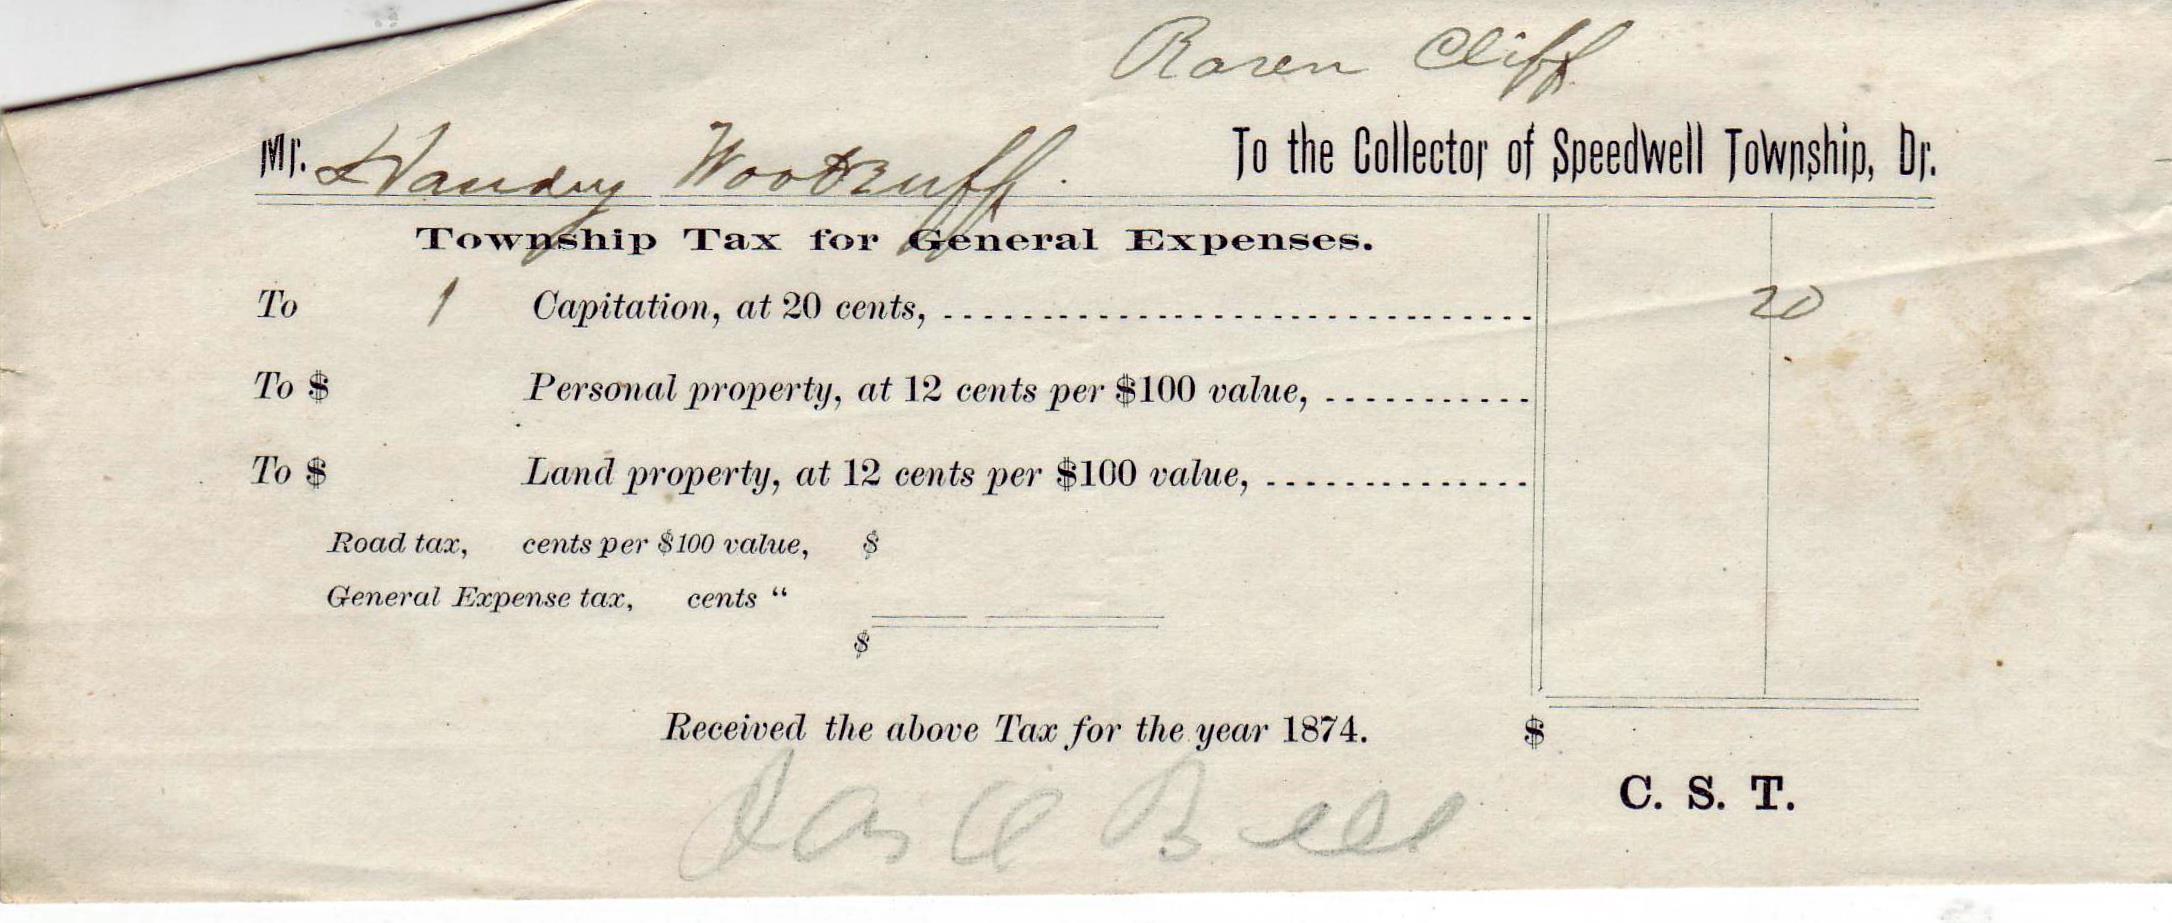 Raven Cliff
Mr. Handy Woodruff. To the Collector of Speedwell Township, Dr.
Township Tax for General Expenses.
To 1 Capitation, at 20 cents, 20
To $ Personal property, at 12 cents per $100 value,
To $ Land property, at 12 cents per $100 value,
Road tax, cents per $100 value, $
General Expense tax, cents "
$
Received the above Tax for the year 1874. $
C. S. T.
Bell